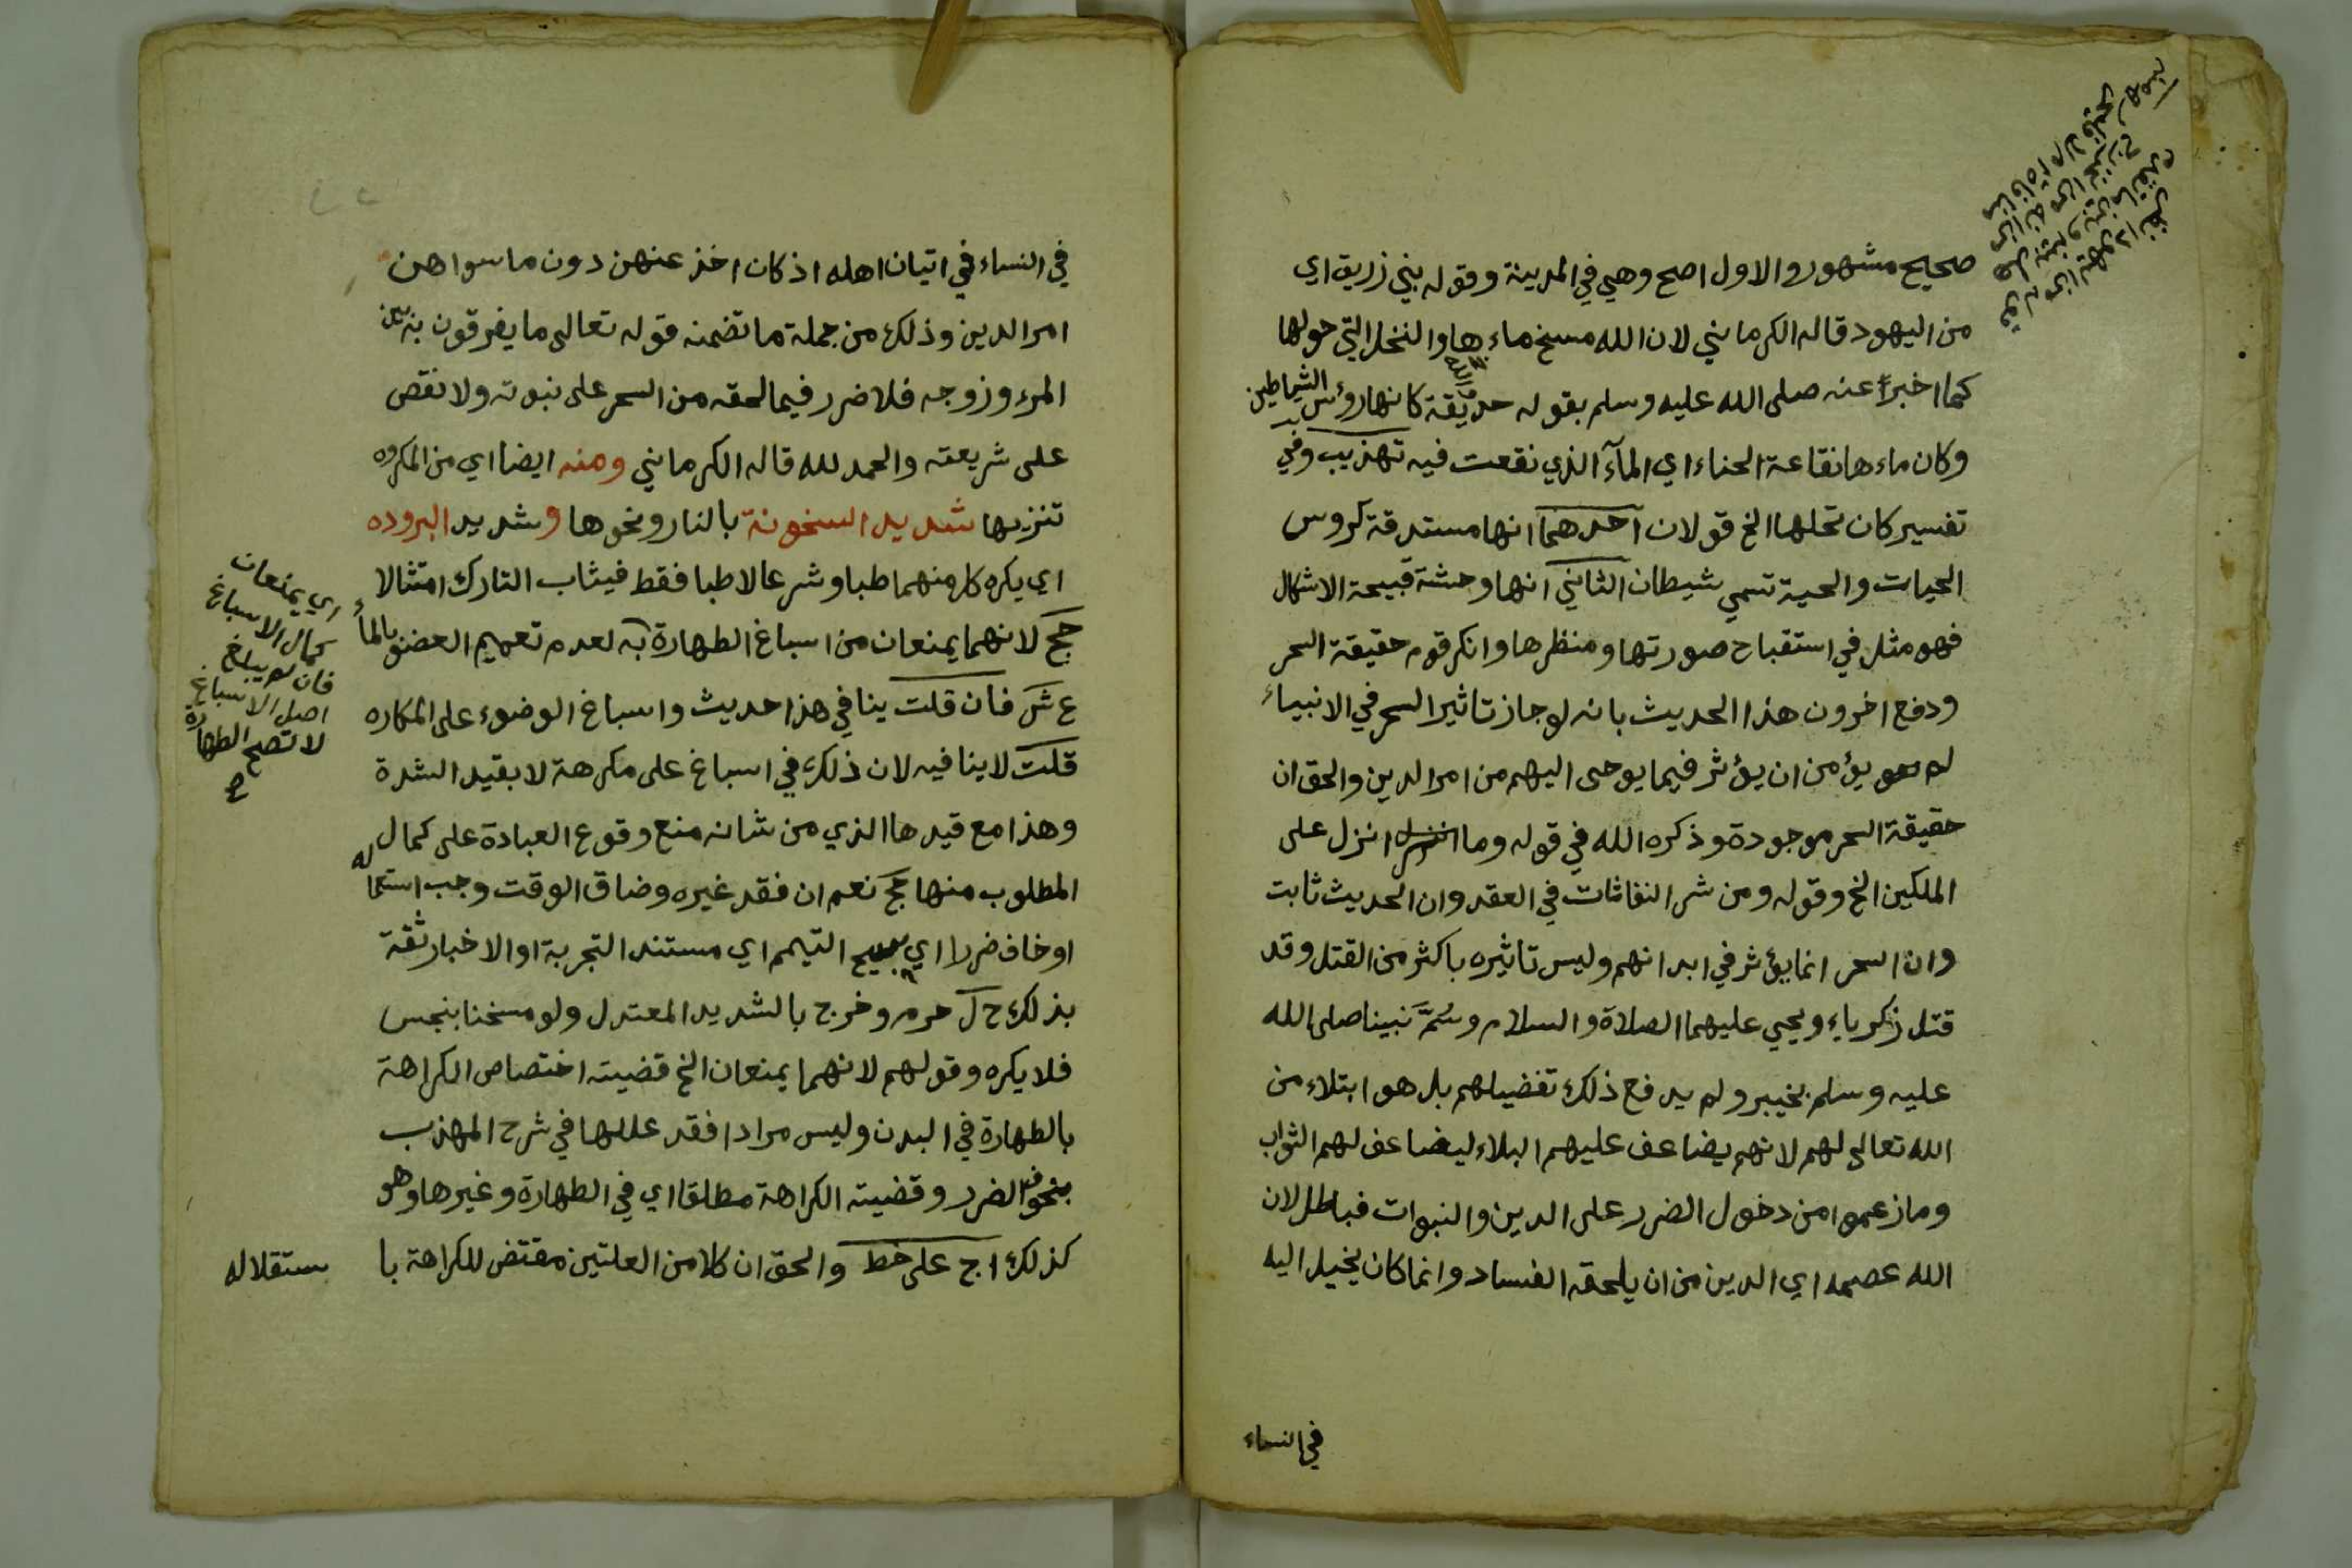 صحيح مشهور والاول اصح وهي في المدينة وقوله بني زريق اي
من اليهود قاله الكرماني لان الله مسخ ماءها والنخل التي حولها
كما اخبر عنه صلى الله عليه وسلم بقوله حديقة كانها رؤس الشياطين
وكان ماءها نقاعة الحناء اي المآء الذي نقعت فيه تهذيب وفي
تفسير كان نخلها الخ قولان آحدهما انها مستدقة كروس
الحيات والحية تسمي شيطان الثاني انها وحشة قبيحة الاشكال
فهو مثل في استقباح صورتها ومنظرها وانكر قوم حقيقة السحر
ودفع اخرون هذا الحديث بانه لو جاز تاثير السحر في الانبياء
لم يؤمن ان يؤثر فيما يوحى اليهم من امر الدين والحق ان
حقيقة السحر موجودة وذكره الله في قوله وما انزل على
الملكين الخ وقوله ومن شر النفاثات في العقد وان الحديث ثابت
وان السحر انما يؤثر في ابدانهم وليس تاثيره باكثر من القتل وقد
قتل زكرياء ويحيي عليهما الصلاة والسلام وسُمَّ نبينا صلى الله
عليه وسلم بخيبر ولم يدفع ذلك تفضيلهم بل هو ابتلاء من
الله تعالى لهم لانهم يضاعف عليهم البلاء ليضاعف لهم الثواب
وما زعموا من دخول الضرر على الدين والنبوات فباطل لان
الله عصمه اي الدين من ان يلحقه الفساد وانما كان يخيل اليه
في النساء
في النساء في اتيان اهله اذ كان اخذ عنهن دون ما سواهن
امر الدين وذلك من جملة ما تضمنه قوله تعالى ما يفرقون به بين
المرء وزوجه فلا ضرر فيما لحقه من السحر على نبوته ولا نقص
على شريعته والحمد لله قاله الكرماني ومنه ايضا اي من المكروه
تنزيها شديد السخونة بالنار ونحوها وشديد البروده
اي يكره كل منهما طبا وشرعا لا طبا فقط فيثاب التارك امتثالا
حج لانهما يمنعان من اسباغ الطهارة به لعدم تعميم العضو بالماء
ع ش فان قلت ينافي هذا حديث واسباغ الوضوء على المكاره
قلت لا ينافيه لان ذلك في اسباغ على مكرهة لا بقيد الشدة
وهذا مع قيدها الذي من شانه منع وقوع العبادة على كمال
المطلوب منها حج نعم ان فقد غيره وضاق الوقت وجب استعماله
او خاف ضررا اي يبيح التيمم اي مستند التجربة او الاخبار ثقة
بذلك ح ل حرم وخرج بالشديد المعتدل ولو مسخنا بنجس
فلا يكره وقولهم لانهما يمنعان الخ قضيته اختصاص الكراهة
بالطهارة في البدن وليس مرادا فقد عللها في شرح المهذب
بخوف الضرر وقضيته الكراهة مطلقا اي في الطهارة وغيرها وهو
كذلك ا ج على خط والحق ان كلا من العلتين مقتض للكراهة با ستقلاله
اي يمنعان
كمال الاسباغ
فان لم يبلغ
اصل الاسباغ
لا تصح الطهارة
ح